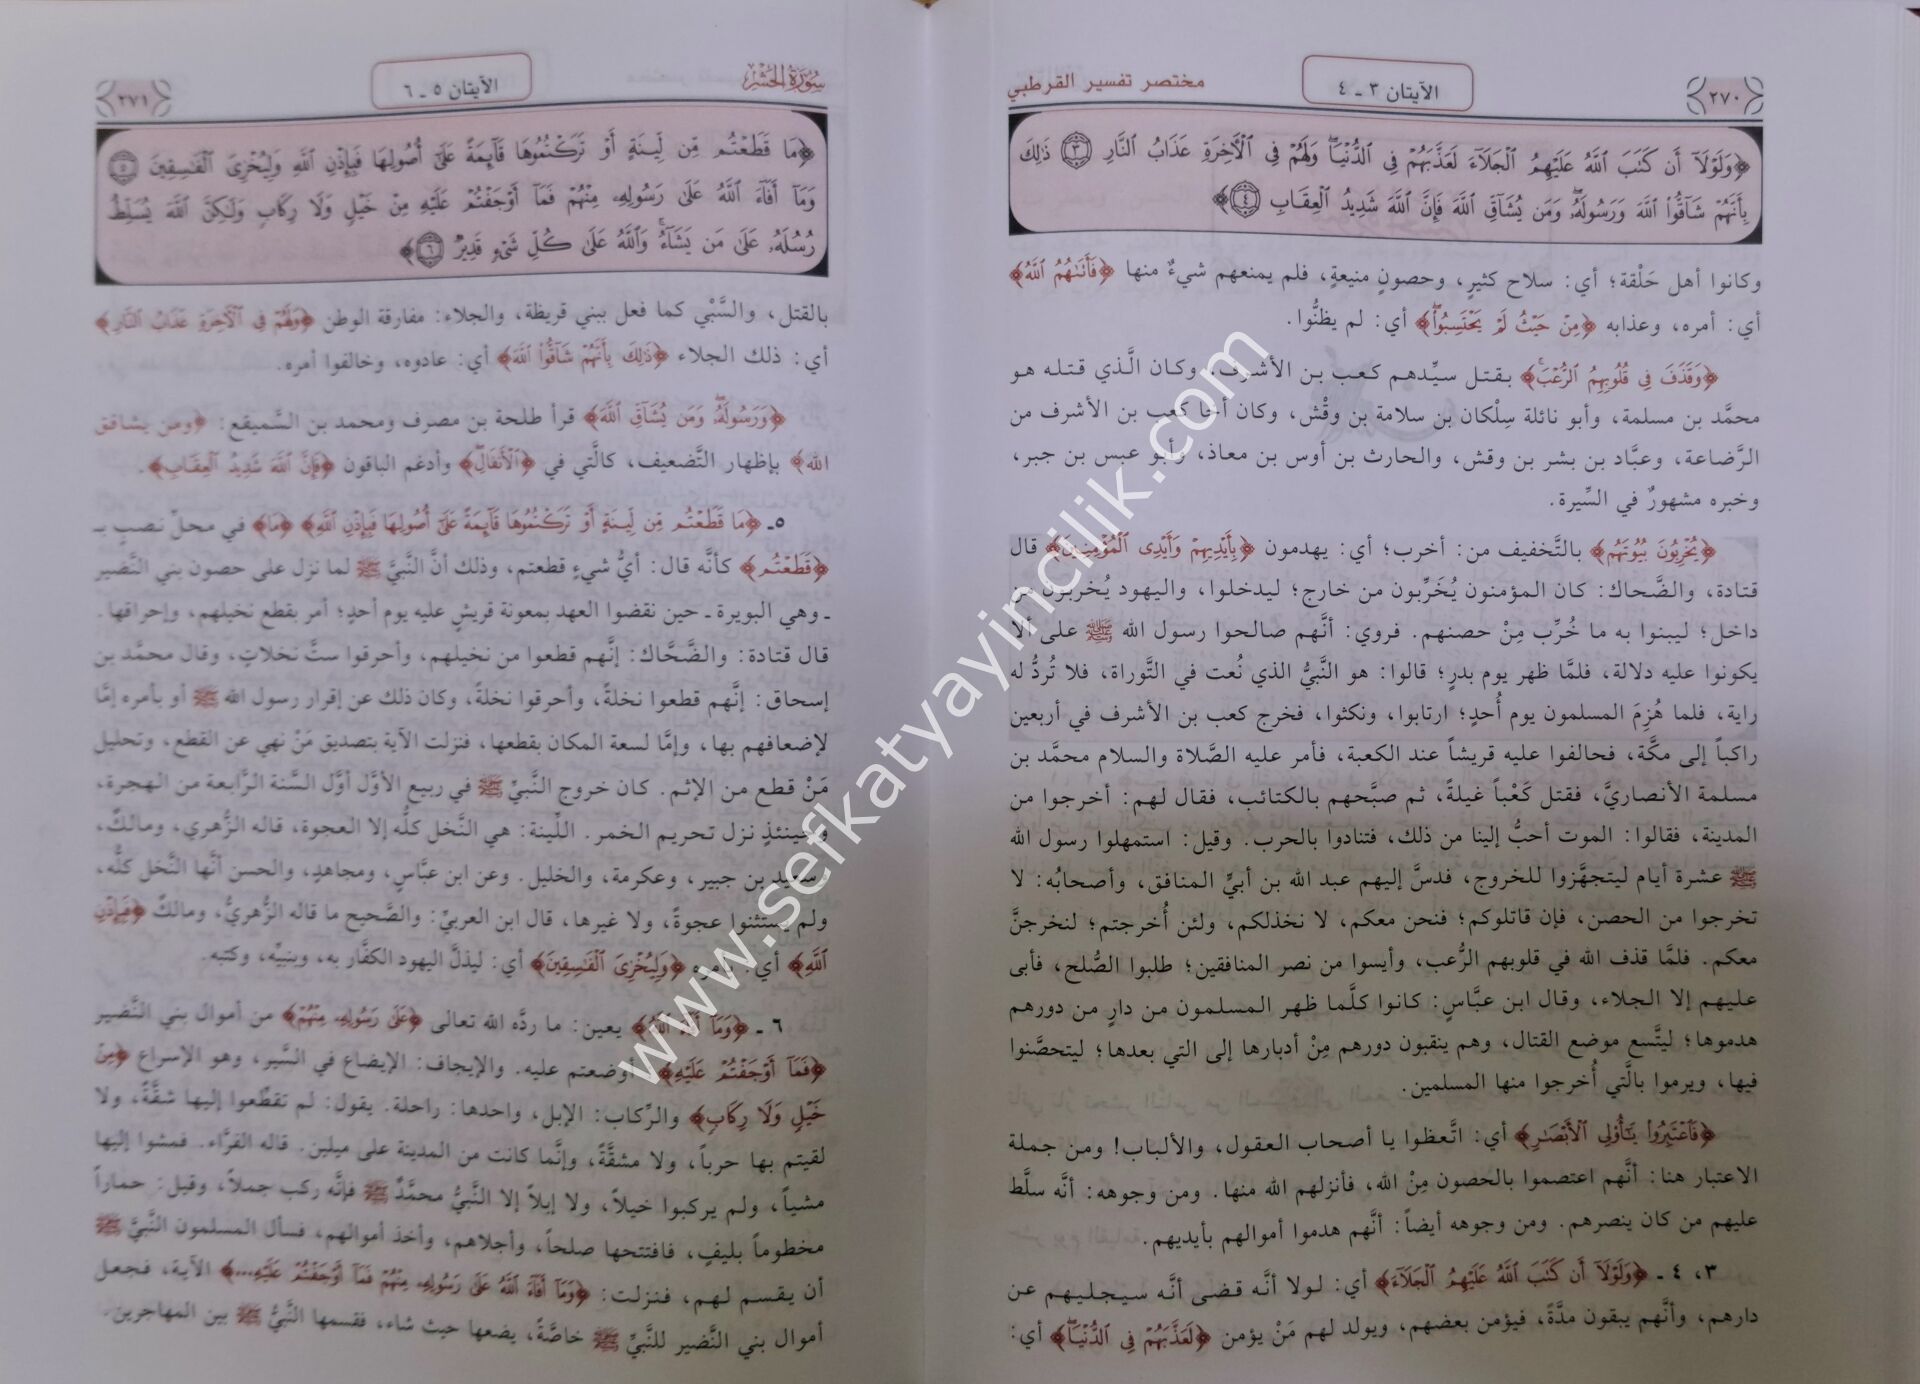 ٢٧٠
الآيتان ٣ ـ ٤
مختصر تفسير القرطبي
﴿وَلَوْلَآ أَن كَتَبَ ٱللَّهُ عَلَيْهِمُ ٱلْجَلَآءَ لَعَذَّبَهُمْ فِى ٱلدُّنْيَا ۖ وَلَهُمْ فِى ٱلْـَٔاخِرَةِ عَذَابُ ٱلنَّارِ ٣ ذَٰلِكَ
بِأَنَّهُمْ شَآقُّوا۟ ٱللَّهَ وَرَسُولَهُۥ ۖ وَمَن يُشَآقِّ ٱللَّهَ فَإِنَّ ٱللَّهَ شَدِيدُ ٱلْعِقَابِ ٤﴾
وكانوا أهل حَلْقة؛ أي: سلاح كثيرٍ، وحصونٍ منيعةٍ، فلم يمنعهم شيءٌ منها ﴿فَأَتَىٰهُمُ ٱللَّهُ﴾
أي: أمره، وعذابه ﴿مِنْ حَيْثُ لَمْ يَحْتَسِبُوا۟ ۖ﴾ أي: لم يظنُّوا.
﴿وَقَذَفَ فِى قُلُوبِهِمُ ٱلرُّعْبَ ۚ﴾ بقتل سيِّدهم كعب بن الأشرف، وكان الَّذي قتله هو
محمَّد بن مسلمة، وأبو نائلة سِلْكان بن سلامة بن وقْش، وكان أخا كعب بن الأشرف من
الرَّضاعة، وعبَّاد بن بشر بن وقش، والحارث بن أوس بن معاذ، وأبو عبس بن جبر،
وخبره مشهورٌ في السِّيرة.
﴿يُخْرِبُونَ بُيُوتَهُم﴾ بالتَّخفيف من: أخرب؛ أي: يهدمون ﴿بِأَيْدِيهِمْ وَأَيْدِى ٱلْمُؤْمِنِينَ﴾ قال
قتادة، والضَّحاك: كان المؤمنون يُخَرِّبون من خارج؛ ليدخلوا، واليهود يُخربون من
داخل؛ ليبنوا به ما خُرِّب مِنْ حصنهم. فروي: أنَّهم صالحوا رسول الله ﷺ على ألا
يكونوا عليه دلالة، فلمَّا ظهر يوم بدرٍ؛ قالوا: هو النَّبيُّ الذي نُعت في التَّوراة، فلا تُردُّ له
راية، فلما هُزِمَ المسلمون يوم أُحدٍ؛ ارتابوا، ونكثوا، فخرج كعب بن الأشرف في أربعين
راكباً إلى مكَّة، فحالفوا عليه قريشاً عند الكعبة، فأمر عليه الصَّلاة والسلام محمَّد بن
مسلمة الأنصاريَّ، فقتل كَعْباً غيلةً، ثم صبَّحهم بالكتائب، فقال لهم: أخرجوا من
المدينة، فقالوا: الموت أحبُّ إلينا من ذلك، فتنادوا بالحرب. وقيل: استمهلوا رسول الله
ﷺ عشرة أيام ليتجهَّزوا للخروج، فدسَّ إليهم عبد الله بن أبيٍّ المنافق، وأصحابُه: لا
تخرجوا من الحصن، فإن قاتلوكم؛ فنحن معكم، لا نخذلكم، ولئن أُخرجتم؛ لنخرجنَّ
معكم. فلمَّا قذف الله في قلوبهم الرُّعب، وأيسوا من نصر المنافقين؛ طلبوا الصُّلح، فأبى
عليهم إلا الجلاء، وقال ابن عبَّاس: كانوا كلَّما ظهر المسلمون من دارٍ من دورهم
هدموها؛ ليتَّسع موضع القتال، وهم ينقبون دورهم مِنْ أدبارها إلى التي بعدها؛ ليتحصَّنوا
فيها، ويرموا بالَّتي أُخرجوا منها المسلمين.
﴿فَٱعْتَبِرُوا۟ يَـٰٓأُو۟لِى ٱلْأَبْصَـٰرِ﴾ أي: اتَّعظوا يا أصحاب العقول، والألباب! ومن جملة
الاعتبار هنا: أنَّهم اعتصموا بالحصون مِنْ الله، فأنزلهم الله منها. ومن وجوهه: أنَّه سلَّط
عليهم من كان ينصرهم. ومن وجوهه أيضاً: أنَّهم هدموا أموالهم بأيديهم.
٣، ٤ ـ ﴿وَلَوْلَآ أَن كَتَبَ ٱللَّهُ عَلَيْهِمُ ٱلْجَلَآءَ﴾ أي: لولا أنَّه قضى أنَّه سيجليهم عن
دارهم، وأنَّهم يبقون مدَّةً، فيؤمن بعضهم، ويولد لهم مَنْ يؤمن ﴿لَعَذَّبَهُمْ فِى ٱلدُّنْيَا ۖ﴾ أي:
سُورَةُ الحَشْر
الآيتان ٥ ـ ٦
٢٧١
﴿مَا قَطَعْتُم مِّن لِّينَةٍ أَوْ تَرَكْتُمُوهَا قَآئِمَةً عَلَىٰٓ أُصُولِهَا فَبِإِذْنِ ٱللَّهِ وَلِيُخْزِىَ ٱلْفَـٰسِقِينَ ٥
وَمَآ أَفَآءَ ٱللَّهُ عَلَىٰ رَسُولِهِۦ مِنْهُمْ فَمَآ أَوْجَفْتُمْ عَلَيْهِ مِنْ خَيْلٍ وَلَا رِكَابٍ وَلَـٰكِنَّ ٱللَّهَ يُسَلِّطُ
رُسُلَهُۥ عَلَىٰ مَن يَشَآءُ ۚ وَٱللَّهُ عَلَىٰ كُلِّ شَىْءٍ قَدِيرٌ ٦﴾
بالقتل، والسَّبْي كما فعل ببني قريظة، والجلاء: مفارقة الوطن ﴿وَلَهُمْ فِى ٱلْـَٔاخِرَةِ عَذَابُ ٱلنَّارِ﴾
أي: ذلك الجلاء ﴿ذَٰلِكَ بِأَنَّهُمْ شَآقُّوا۟ ٱللَّهَ﴾ أي: عادوه، وخالفوا أمره.
﴿وَرَسُولَهُۥ ۖ وَمَن يُشَآقِّ ٱللَّهَ﴾ قرأ طلحة بن مصرف ومحمد بن السَّميقع: ﴿ومن يشاقق
الله﴾ بإظهار التَّضعيف، كالَّتي في ﴿ٱلْأَنفَالِ ۖ﴾ وأدغم الباقون ﴿فَإِنَّ ٱللَّهَ شَدِيدُ ٱلْعِقَابِ﴾.
٥ـ ﴿مَا قَطَعْتُم مِّن لِّينَةٍ أَوْ تَرَكْتُمُوهَا قَآئِمَةً عَلَىٰٓ أُصُولِهَا فَبِإِذْنِ ٱللَّهِ﴾ ﴿مَا﴾ في محلِّ نصبٍ بـ
﴿قَطَعْتُم﴾ كأنَّه قال: أيُّ شيءٍ قطعتم، وذلك أنَّ النَّبيَّ ﷺ لما نزل على حصون بني النَّضير
ـ وهي البويرة ـ حين نقضوا العهد بمعونة قريشٍ عليه يوم أحدٍ؛ أمر بقطع نخيلهم، وإحراقها.
قال قتادة: والضَّحَّاك: إنَّهم قطعوا من نخيلهم، وأحرقوا ستَّ نخلاتٍ، وقال محمَّد بن
إسحاق: إنَّهم قطعوا نخلةً، وأحرقوا نخلةً، وكان ذلك عن إقرار رسول الله ﷺ أو بأمره إمَّا
لإضعافهم بها، وإمَّا لسعة المكان بقطعها، فنزلت الآية بتصديق مَنْ نهي عن القطع، وتحليل
مَنْ قطع من الإثم. كان خروج النَّبيِّ ﷺ في ربيع الأوَّل أوَّل السَّنة الرَّابعة من الهجرة،
وحينئذٍ نزل تحريم الخمر. اللِّينة: هي النَّخل كلُّه إلا العجوة، قاله الزُّهري، ومالكٌ،
وسعيد بن جبير، وعكرمة، والخليل. وعن ابن عبَّاسٍ، ومجاهدٍ، والحسن أنَّها النَّخل كلُّه،
ولم يستثنوا عجوةً، ولا غيرها، قال ابن العربيِّ: والصَّحيح ما قاله الزُّهريُّ، ومالكٌ ﴿فَبِإِذْنِ
ٱللَّهِ﴾ أي: بأمره ﴿وَلِيُخْزِىَ ٱلْفَـٰسِقِينَ﴾ أي: ليذلَّ اليهود الكفَّار به، وبنبيِّه، وكتبه.
٦ ـ ﴿وَمَآ أَفَآءَ ٱللَّهُ﴾ يعين: ما ردَّه الله تعالى ﴿عَلَىٰ رَسُولِهِۦ مِنْهُمْ﴾ من أموال بني النَّضير
﴿فَمَآ أَوْجَفْتُمْ عَلَيْهِ﴾ أوضعتم عليه. والإيجاف: الإيضاع في السَّير، وهو الإسراع ﴿مِنْ
خَيْلٍ وَلَا رِكَابٍ﴾ والرِّكاب: الإبل، واحدها: راحلة. يقول: لم تقطِّعوا إليها شقَّةً، ولا
لقيتم بها حرباً، ولا مشقَّةً، وإنَّما كانت من المدينة على ميلين. قاله الفرَّاء. فمشوا إليها
مشياً، ولم يركبوا خيلاً، ولا إبلاً إلا النَّبيُّ محمَّدٌ ﷺ فإنَّه ركب جملاً، وقيل: حماراً
مخطوماً بليفٍ، فافتتحها صلحاً، وأجلاهم، وأخذ أموالهم، فسأل المسلمون النَّبيَّ ﷺ
أن يقسم لهم، فنزلت: ﴿وَمَآ أَفَآءَ ٱللَّهُ عَلَىٰ رَسُولِهِۦ مِنْهُمْ فَمَآ أَوْجَفْتُمْ عَلَيْهِ...﴾ الآية، فجعل
أموال بني النَّضير للنَّبيِّ ﷺ خاصَّةً، يضعها حيث شاء، فقسمها النَّبيُّ ﷺ بين المهاجرين.
www.sefkatyayincilik.com